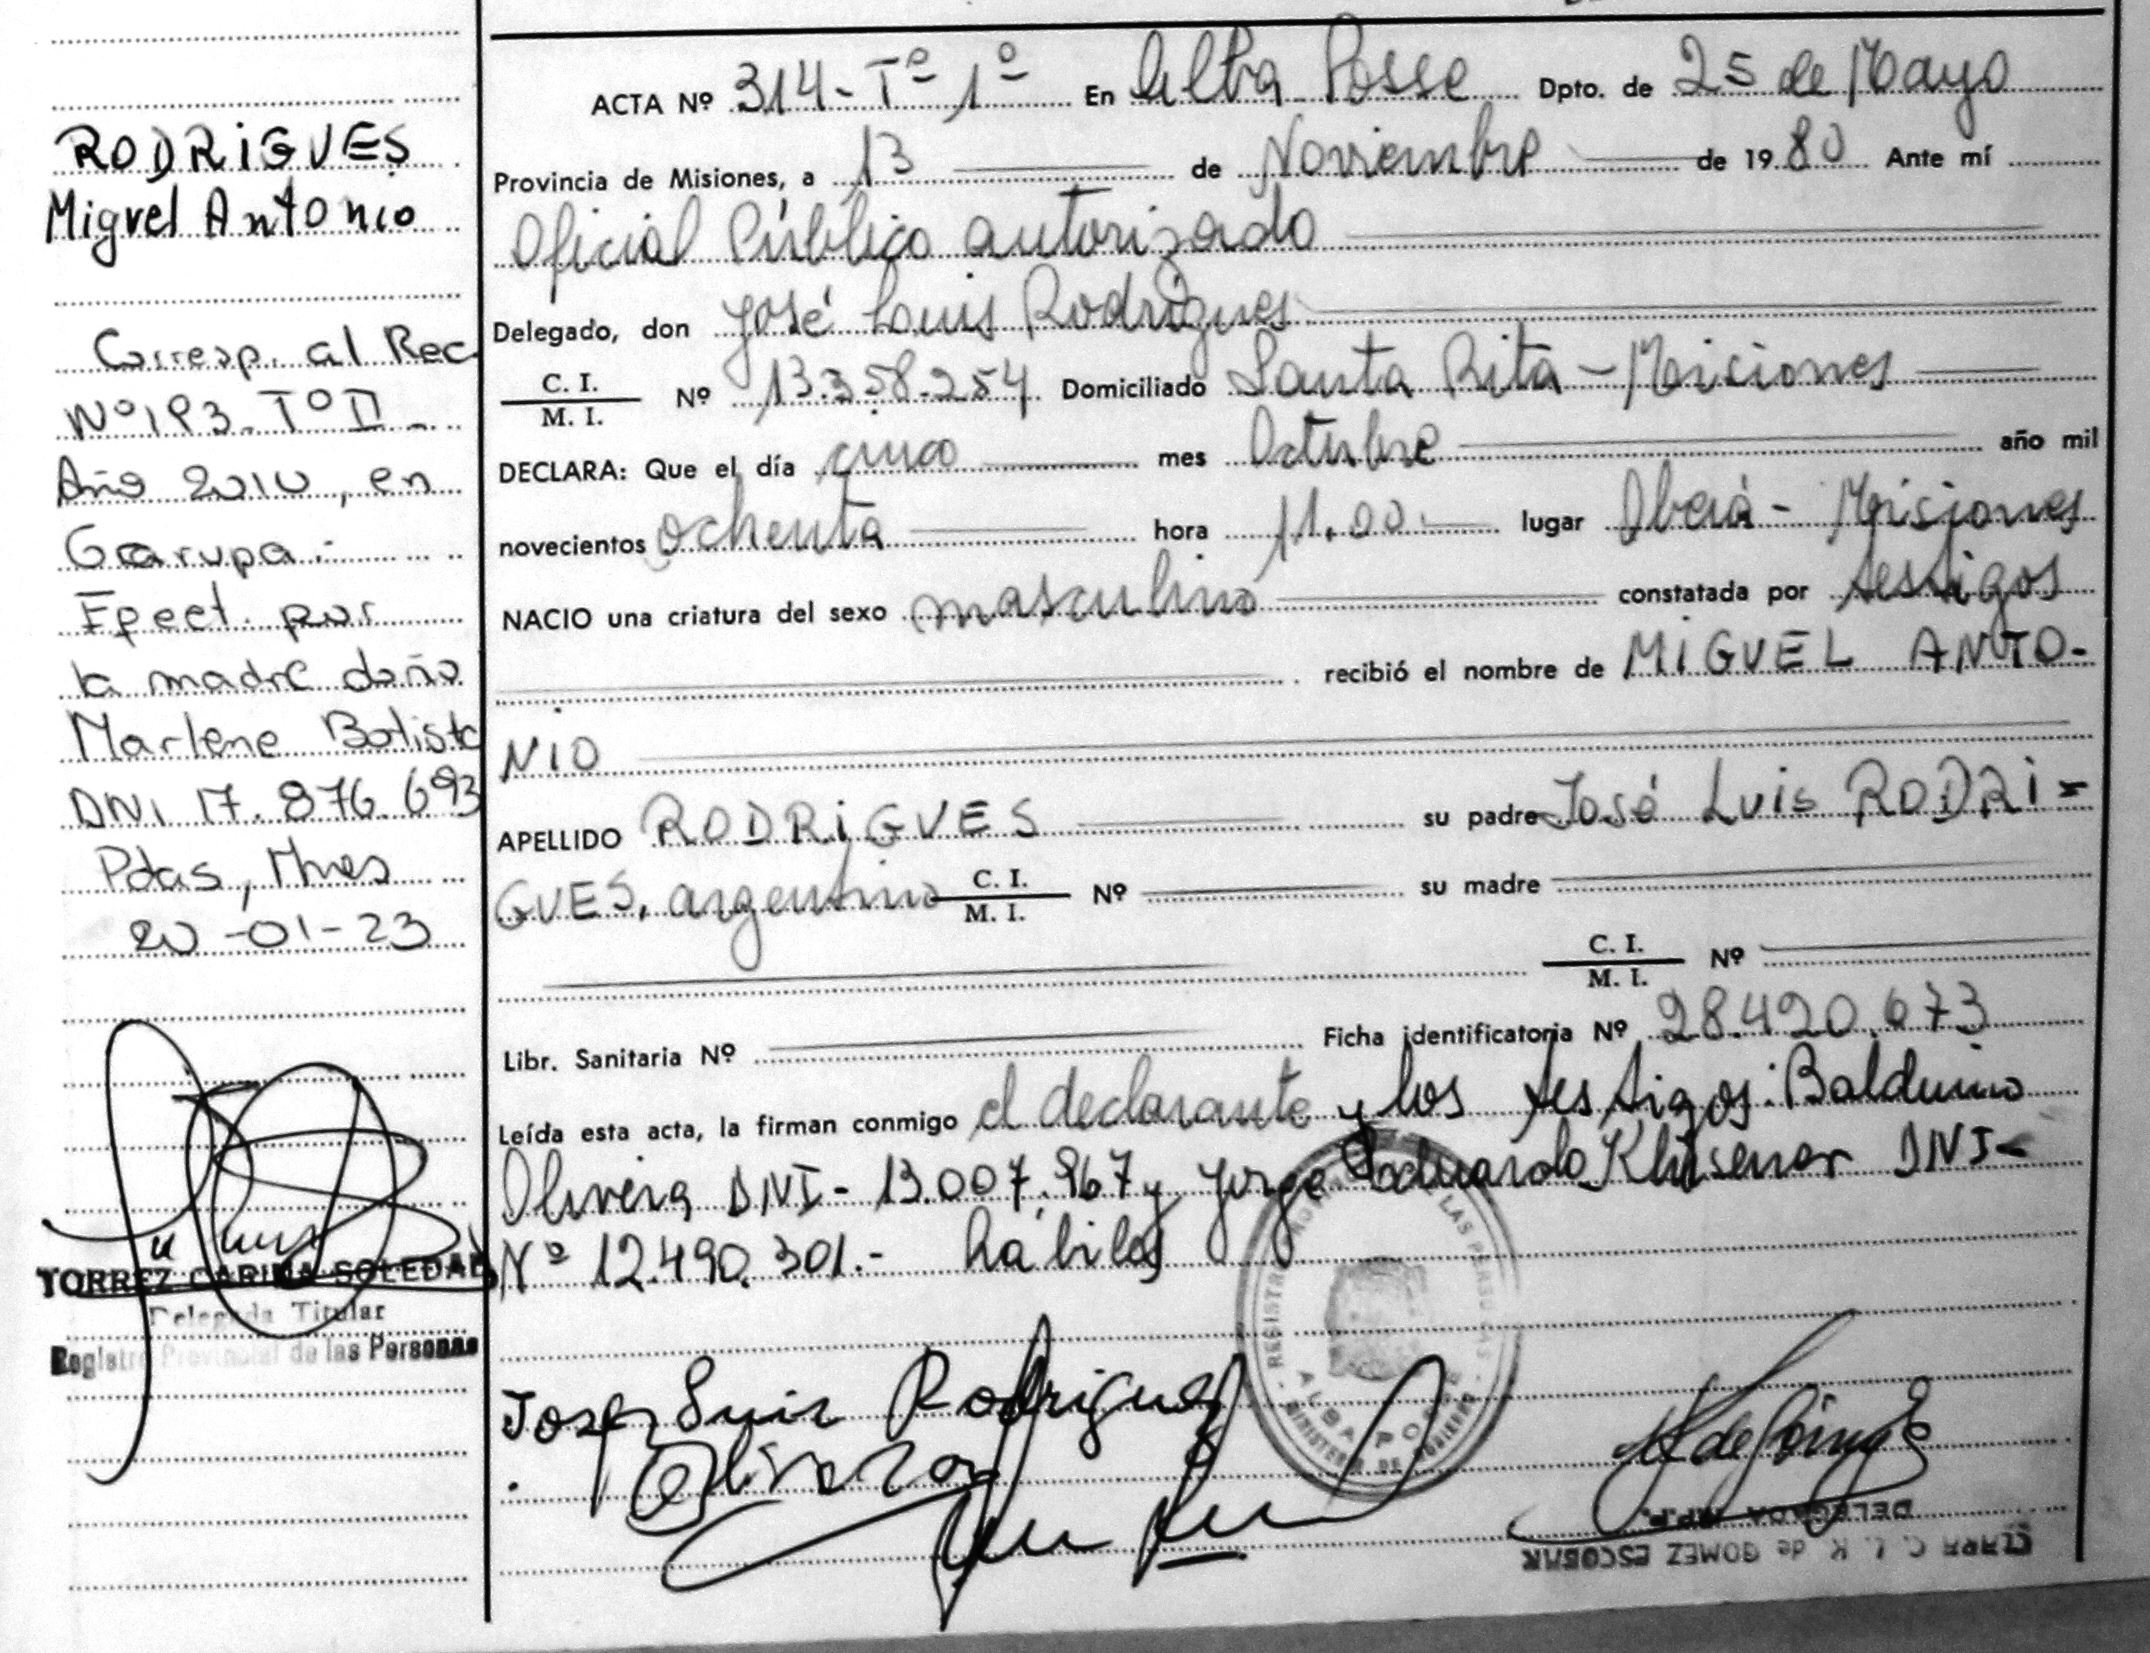 RODRiGUES
Miguel Antonio
Corresp. al Rec.
Nº 193. Tº II
Año 2010, en
Garupa.-
Efect. por
la madre doña
Marlene Batista
DNI 17.876.693
Pdas, Mnes
20-01-23
TORREZ CARINA SOLEDAD
Delegada Titular
Registro Provincial de las Personas
ACTA Nº 314-Tº 1º En Alba Posse Dpto. de 25 de Mayo
Provincia de Misiones, a 13 de Noviembre de 1980 Ante mí
Oficial Público autorizado
Delegado, don José Luis Rodrigues
C. I.
M. I. Nº 13.358.254 Domiciliado Santa Rita - Misiones
DECLARA: Que el día cinco mes Octubre año mil
novecientos ochenta hora 11,00 lugar Oberá - Misiones
NACIO una criatura del sexo masculino constatada por testigos
recibió el nombre de MiGUEL ANTO-
NiO
APELLIDO RODRiGUES su padre José Luis RODRi=
GUES, argentino C. I.
M. I. Nº su madre
C. I.
M. I. Nº
Libr. Sanitaria Nº Ficha identificatoria Nº 28.420.673
Leída esta acta, la firman conmigo el declarante y los testigos: Balduino
Olivera, DNI- 13.007.967 y Jorge Eduardo DNI-
Nº 12.490.301.- hábiles
REGISTRO LAS PERSONAS
ALBA POSSE
MINISTERIO DE GOBIERNO
Jose Luis Rodrigues
Olivera
CLARA C. L. K. de GOMEZ ESCOBAR
DELEGADA R.P.P.